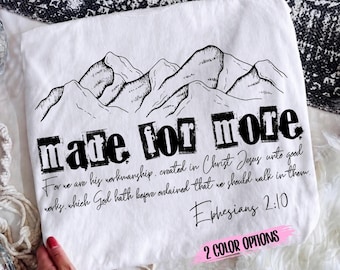 made for more
For we are his workmanship, created in Christ Jesus unto good
works, which God hath before ordained that we should walk in them.
Ephesians 2:10
2 COLOR OPTIONS